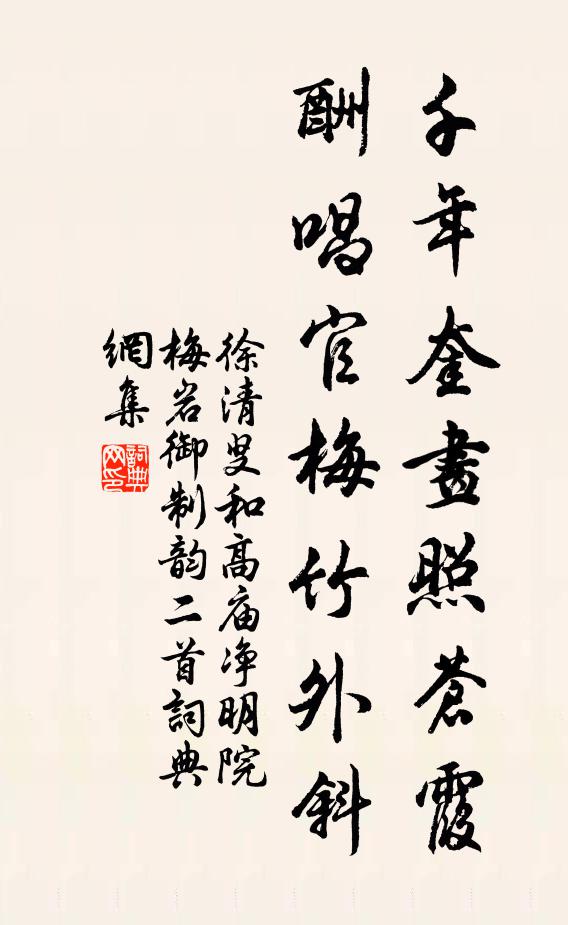 千年奎畫照蒼霞
酬唱官梅竹外斜
徐清叟和高庙净明院
梅岩御制韵二首詞典
網集
詞典网印